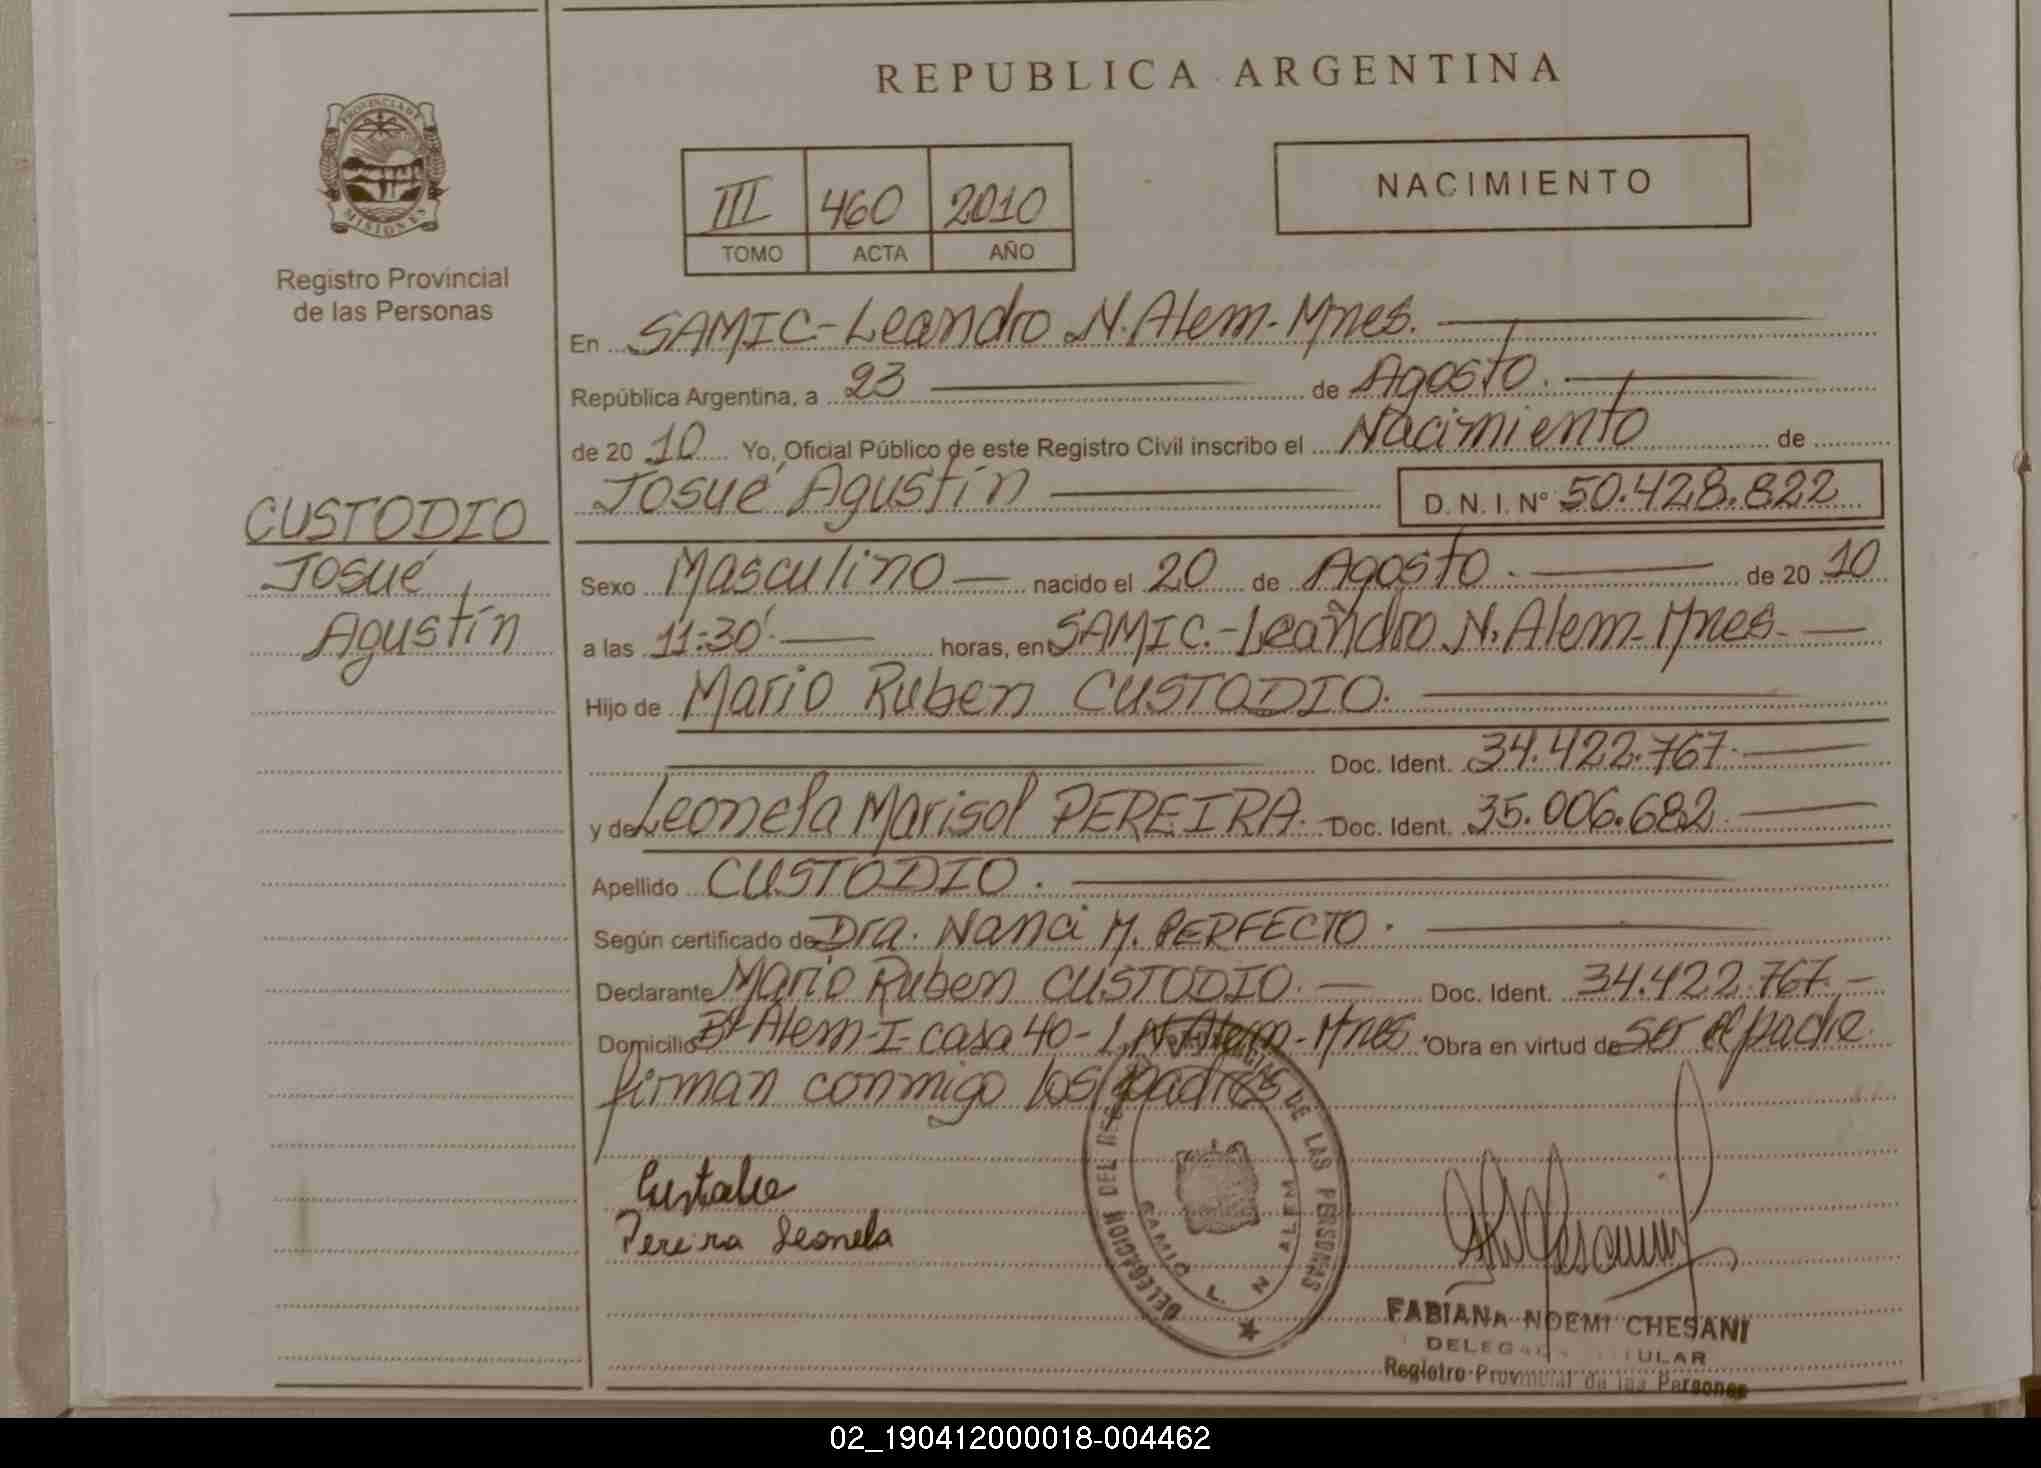 REPUBLICA ARGENTINA
PROVINCIA DE
MISIONES
Registro Provincial
de las Personas
III 460 2010
TOMO ACTA AÑO
NACIMIENTO
En SAMIC-Leandro N. Alem-Mnes.
República Argentina, a 23 de Agosto.
de 20 10 Yo, Oficial Público de este Registro Civil inscribo el Nacimiento de
Josué Agustín D. N. I. Nº 50.428.822
CUSTODIO
Josué
Agustín
Sexo Masculino nacido el 20 de Agosto. de 20 10
a las 11:30' horas, en SAMIC.-Leandro N. Alem-Mnes-
Hijo de Mario Ruben CUSTODIO.
Doc. Ident. 34.422.767.
y de Leonela Marisol PEREIRA. Doc. Ident. 35.006.682.
Apellido CUSTODIO.
Según certificado de Dra. Nanci M. PERFECTO.
Declarante Mario Ruben CUSTODIO. Doc. Ident. 34.422.767.-
Domicilio Bº Alem-I-casa 40-L.N.Alem-Mnes. Obra en virtud de ser el padre
firman conmigo los padres
Pereira Leonela
DELEGACION DEL REGISTRO PROVINCIAL DE LAS PERSONAS
SAMIC L. N ALEM
FABIANA NOEMI CHESANI
Registro Provincial de las Personas
02_190412000018-004462